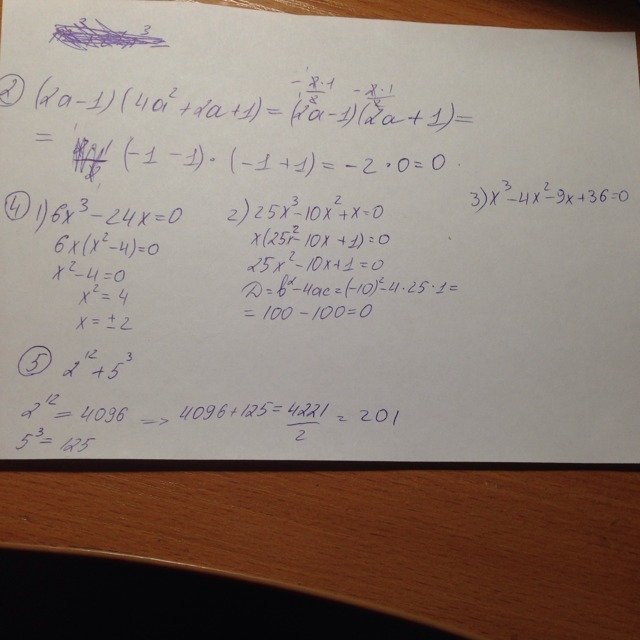 2 (2a-1)(4a²+2a+1) = (2a-1)(2a+1)=
= (-1-1)·(-1+1)=-2·0=0
4 1) 6x³-24x=0
6x(x²-4)=0
x²-4=0
x²=4
x=±2
2) 25x³-10x²+x=0
x(25x²-10x+1)=0
25x²-10x+1=0
D=b²-4ac=(-10)²-4·25·1=
=100-100=0
3) x³-4x²-9x+36=0
5 2¹²+5³
2¹²=4096 => 4096+125=4221/2=201
5³=125